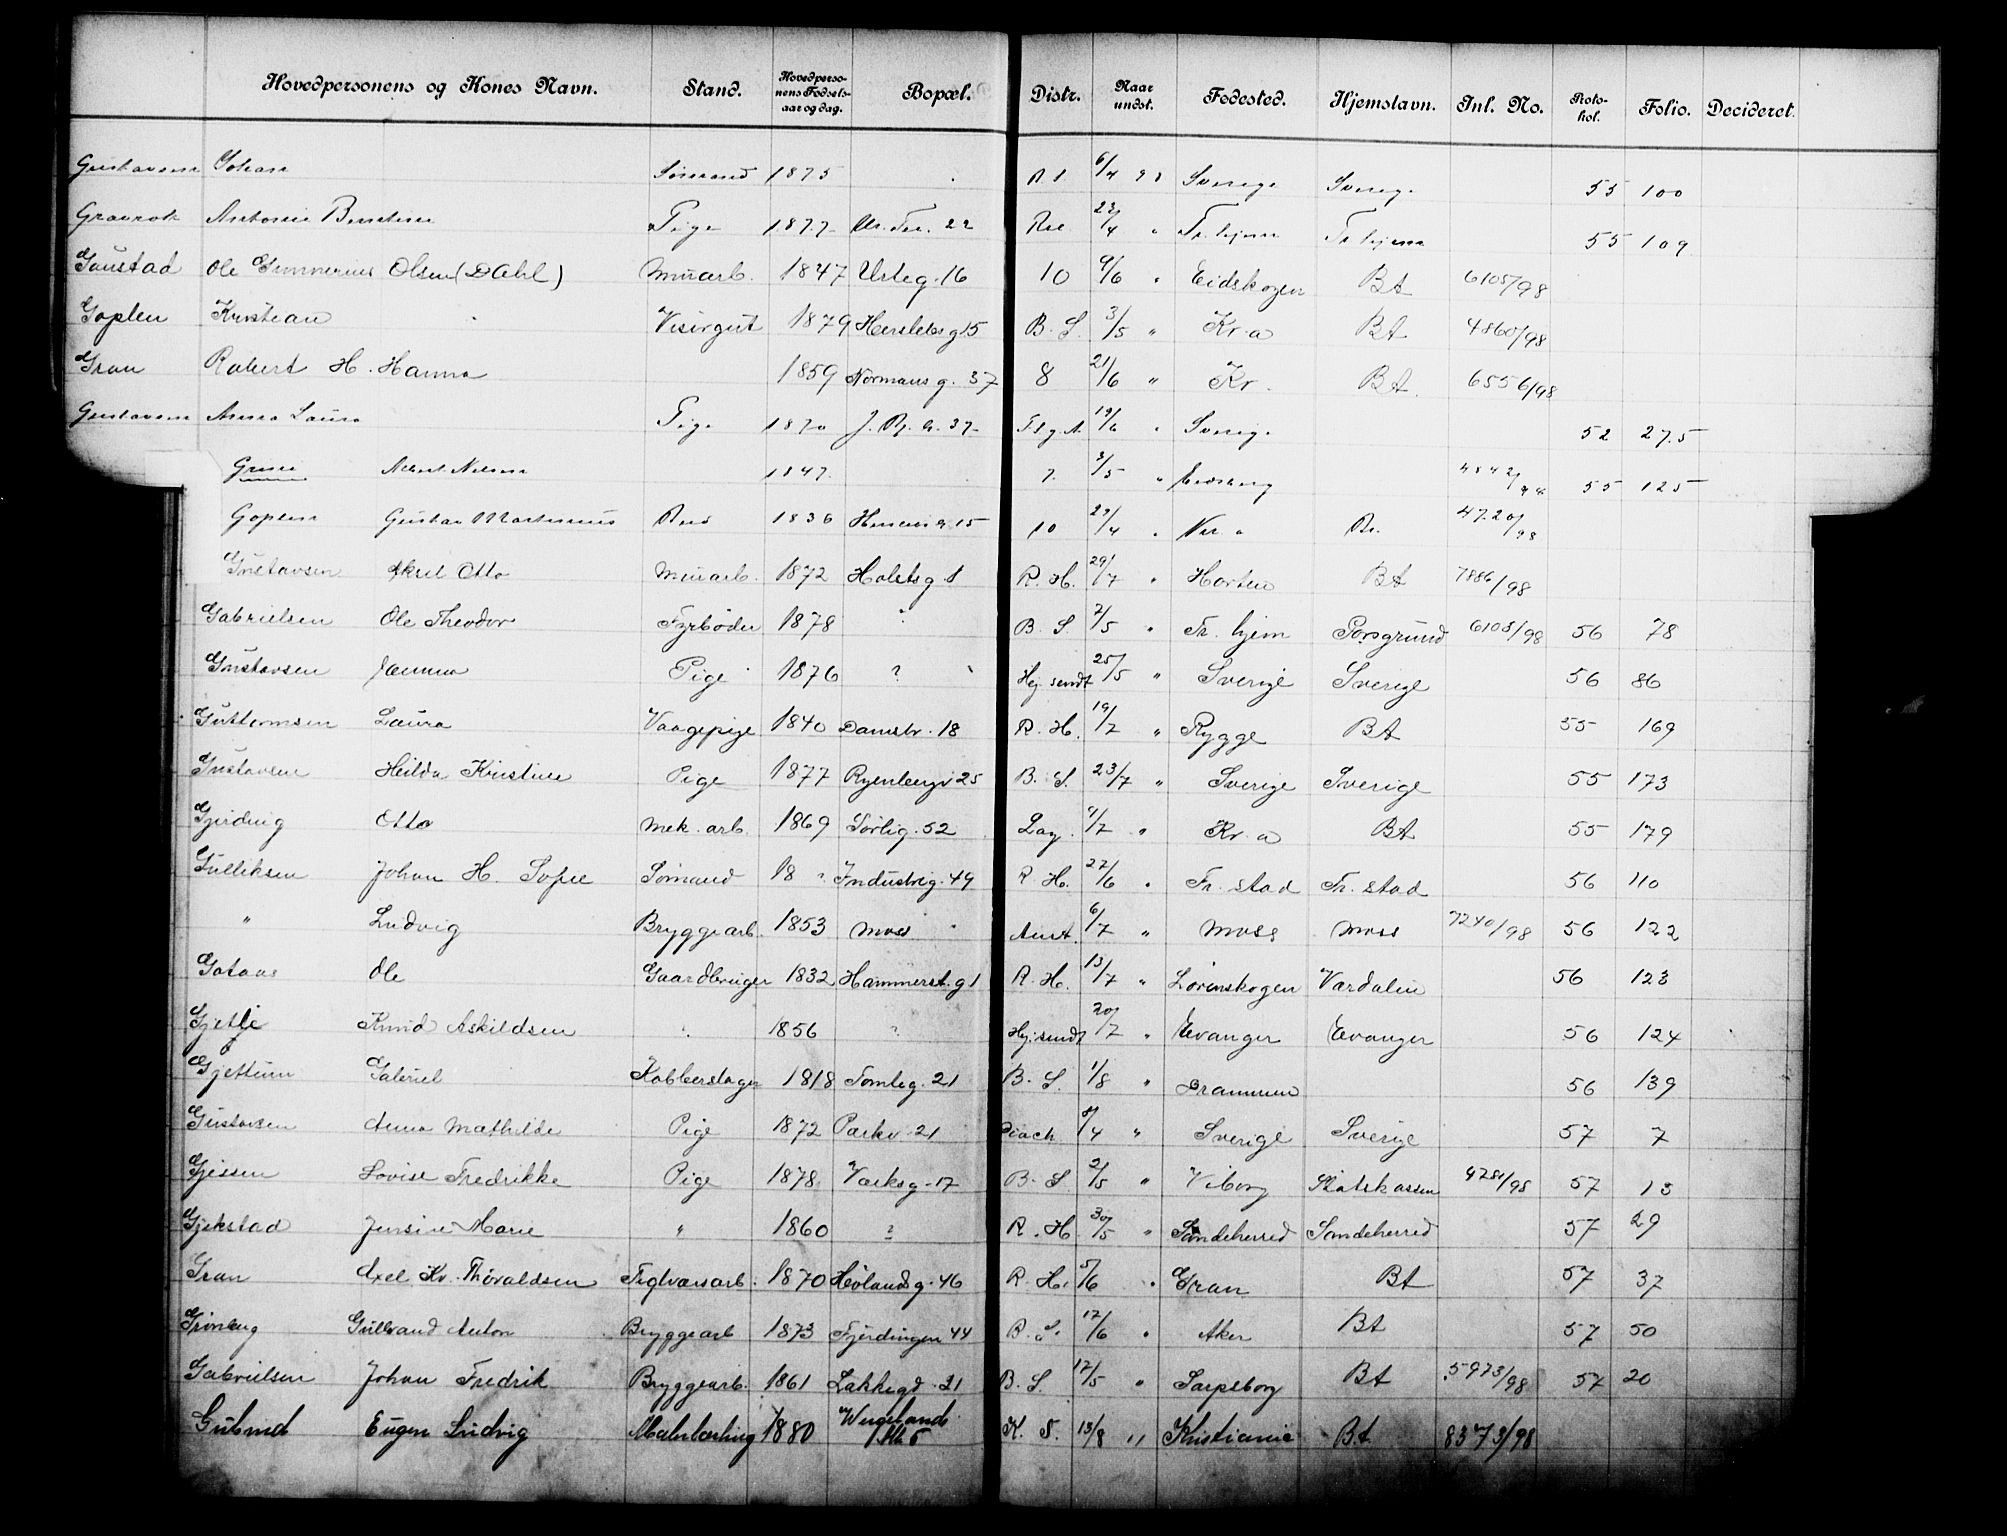 Hovedpersonens og Kones Navn. Stand. Hovedpersonens Fødselsaar og dag. Bopæl. Distr. Naar undst. Fødested. Hjemstavn. Inl. No. Protokol. Folio. Decideret.
Gustavsen Johan Sømand 1875 6/4 98 Sverige Sverige 55 100
Gravrok Antonie Pige 1877 22 22/4 " Tr.hjem Tr.hjem 55 109
Gaustad Ole Gunnerius Olsen (Dahl) Murarb. 1847 Urteg. 16 10 9/6 " Eidskogen Bt 6105/98
Goplen Kristian Visergut 1879 Herslebsg 15 B. S. 3/5 " Kr.a Bt 4860/98
Gran Robert H. Hanna 1859 Normansg. 37 8 21/6 " Kr. Bt. 6556/98
Gustavsen Anna Laura Pige 1870 37 19/6 " Sverige 52 275
Albert Nilsen 1847 7. 3/5 " 55 125
Goplen Gustav Martinius 1836 15 10 29/4 " Kr. a Bt. 4720/98
Gustavsen Axel Otto Murarb. 1872 Holstsg 1 R. H. 29/7 " Horten Bt 7886/98
Gabrielsen Ole Theodor Fyrbøder 1878 B. S. 7/5 " Tr. hjem Porsgrund 6103/98 56 78
Gustavsen Emma Pige 1876 ? Hj. sendt 25/5 " Sverige Sverige 56 86
Guttormsen Laura Vaagepige 1840 Damstr. 18 R. H. 19/7 " Rygge Bt 55 169
Gustavsen Hilda Kristine Pige 1877 Ryenbergv 25 B. S. 23/7 " Sverige Sverige 55 173
Gjerding Otto Mek. arb. 1869 Sørlig. 52 Lag. 9/7 " Kr. a Bt 55 179
Gulliksen Johan H. Sofie Sømand 18 " Industrig. 49 R. H. 27/6 " Fr. stad Fr. stad 56 110
" Ludvig Bryggearb. 1853 Moss Anst. 6/7 " Moss Moss 7240/98 56 122
Gotaas Ole Gaardbruger 1832 Hammerst.g 1 R. H. 13/7 " Lørenskogen Værdalen 56 123
Gjette Knud Askildsen 1856 ? Hj. sendt 20/7 " Evanger Evanger 56 124
Gjettum Gabriel Kobberslager 1818 Tomteg. 21 B. S. 1/8 " Drammen 56 139
Gustavsen Anna Mathilde Pige 1872 Parkv. 21 Diach 8/4 " Sverige Sverige 57 7
Gjessen Lovise Fredrikke Pige 1878 Værksg. 17 B. S. 2/5 " Viborg Statskassen 4781/98 57 13
Gjekstad Jensine Marie " 1860 ? R. H. 30/5 " Sandeherred Sandeherred 57 29
Gran Axel Kr. Thorvaldsen Teglværsarb. 1870 Heilandsg. 46 R. H. 5/6 " Gran Bt 57 37
Grønberg Gulbrand Anton Bryggearb 1873 Fjerdingen 44 B. S. 17/6 " Aker Bt 57 50
Gabrielsen Johan Fredrik Bryggearb. 1861 Lakkegd. 21 B. S. 17/5 " Sarpsborg Bt 5973/98 57 20
Eugen Ludvig Malerlærling 1880 K. S. 13/8 " Kristiania Bt 8373/98